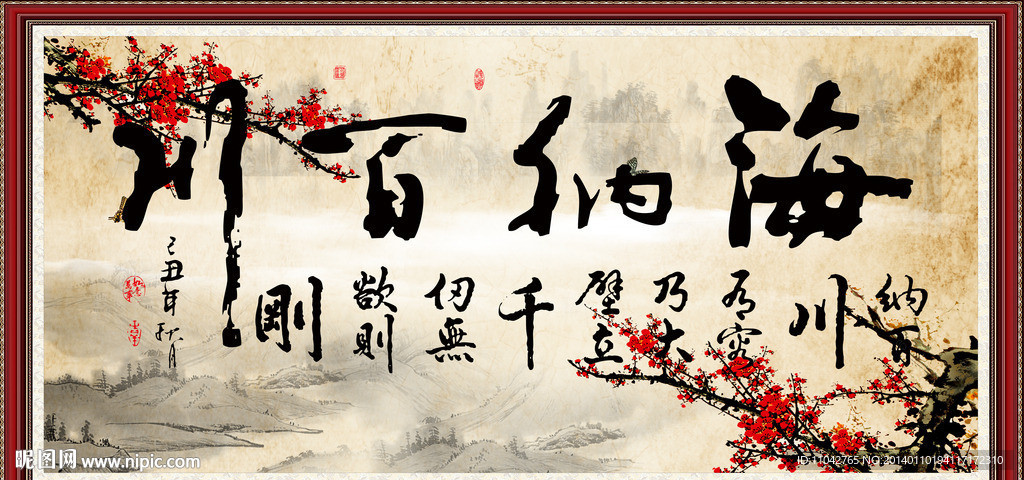 海納百川
納百川有容乃大壁立千仞無欲則剛
己丑年秋月
昵图网 www.nipic.com
ID:11042765 NO:20140110194117172310